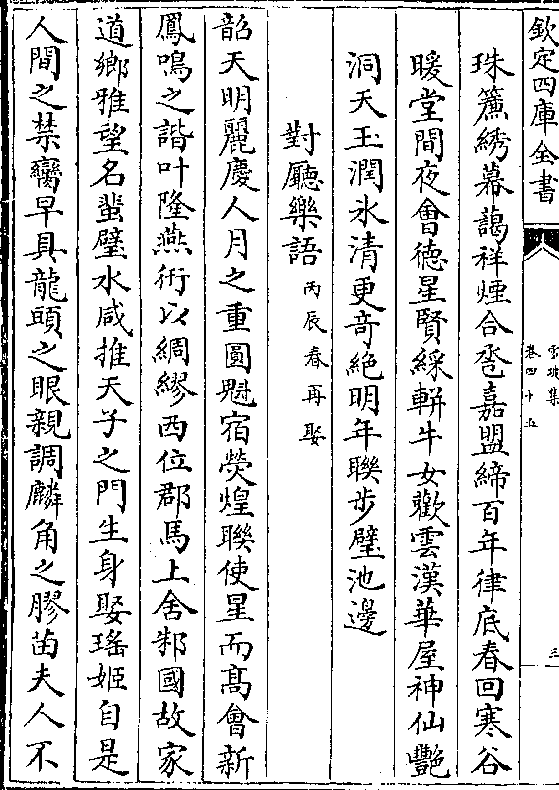 欽定四庫全書
雪坡集
卷四十五
三
珠簾綉幕藹祥煙合卺嘉盟締百年律底春回寒谷
暖堂間夜會德星賢綵軿牛女歡雲漢華屋神仙艷
洞天玉潤氷清更奇絶明年聯步璧池邊
對廳樂語丙辰春再娶
韶天明麗慶人月之重圓魁宿熒煌聯使星而髙會新
鳳鳴之諧叶隆燕術以綢繆西位郡馬上舍邦國故家
道鄉雅望名蜚璧水咸推天子之門生身娶瑤姬自是
人間之禁臠早具龍頭之眼親調麟角之膠苖夫人不